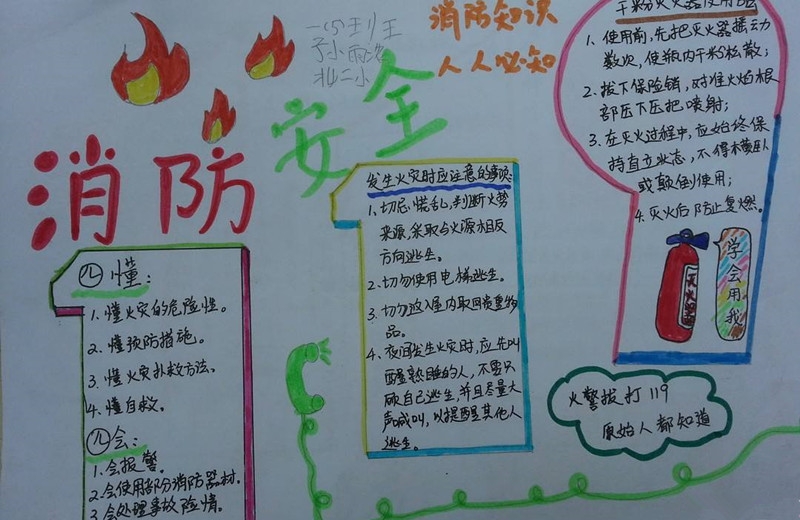 消防安全
消防知识
人人必知
干粉灭火器使用方法
1、使用前,先把灭火器摇动
数次,使瓶内干粉松散;
2、拔下保险销,对准火焰根
部压下压把喷射;
3、在灭火过程中,应始终保
持直立状态,不得横卧
或颠倒使用;
4、灭火后防止复燃。
灭火器
学会用我
发生火灾时应注意的事项:
1、切忌慌乱,判断火势
来源,采取与火源相反
方向逃生。
2、切勿使用电梯逃生。
3、切勿返入屋内取回贵重物
品。
4、夜间发生火灾时,应先叫
醒熟睡的人,不要只
顾自己逃生,并且尽量大
声喊叫,以提醒其他人
逃生。
四懂:
1、懂火灾的危险性。
2、懂预防措施。
3、懂火灾扑救方法。
4、懂自救。
四会:
1、会报警。
2、会使用部分消防器材.
3、会处理事故险情.
火警拔打119
原始人都知道